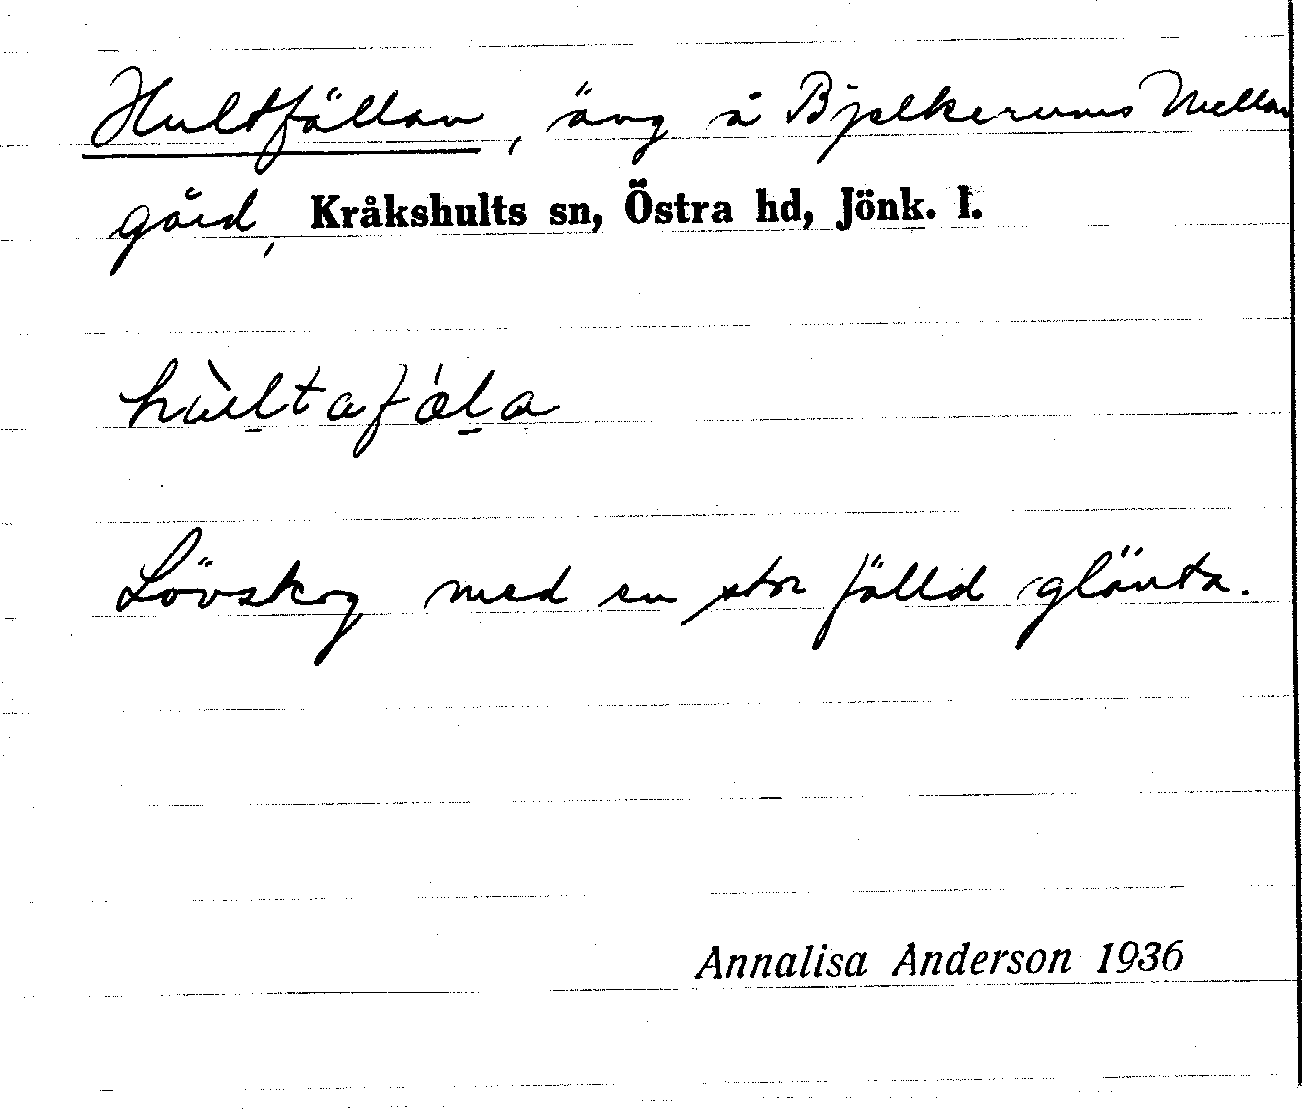 Hultfällan, äng å Bjelkerums Mellan
gård, Kråkshults sn, Östra hd, Jönk. l.
hùltafǽla
Lövskog med en stor fälld glänta.
Annalisa Anderson 1936